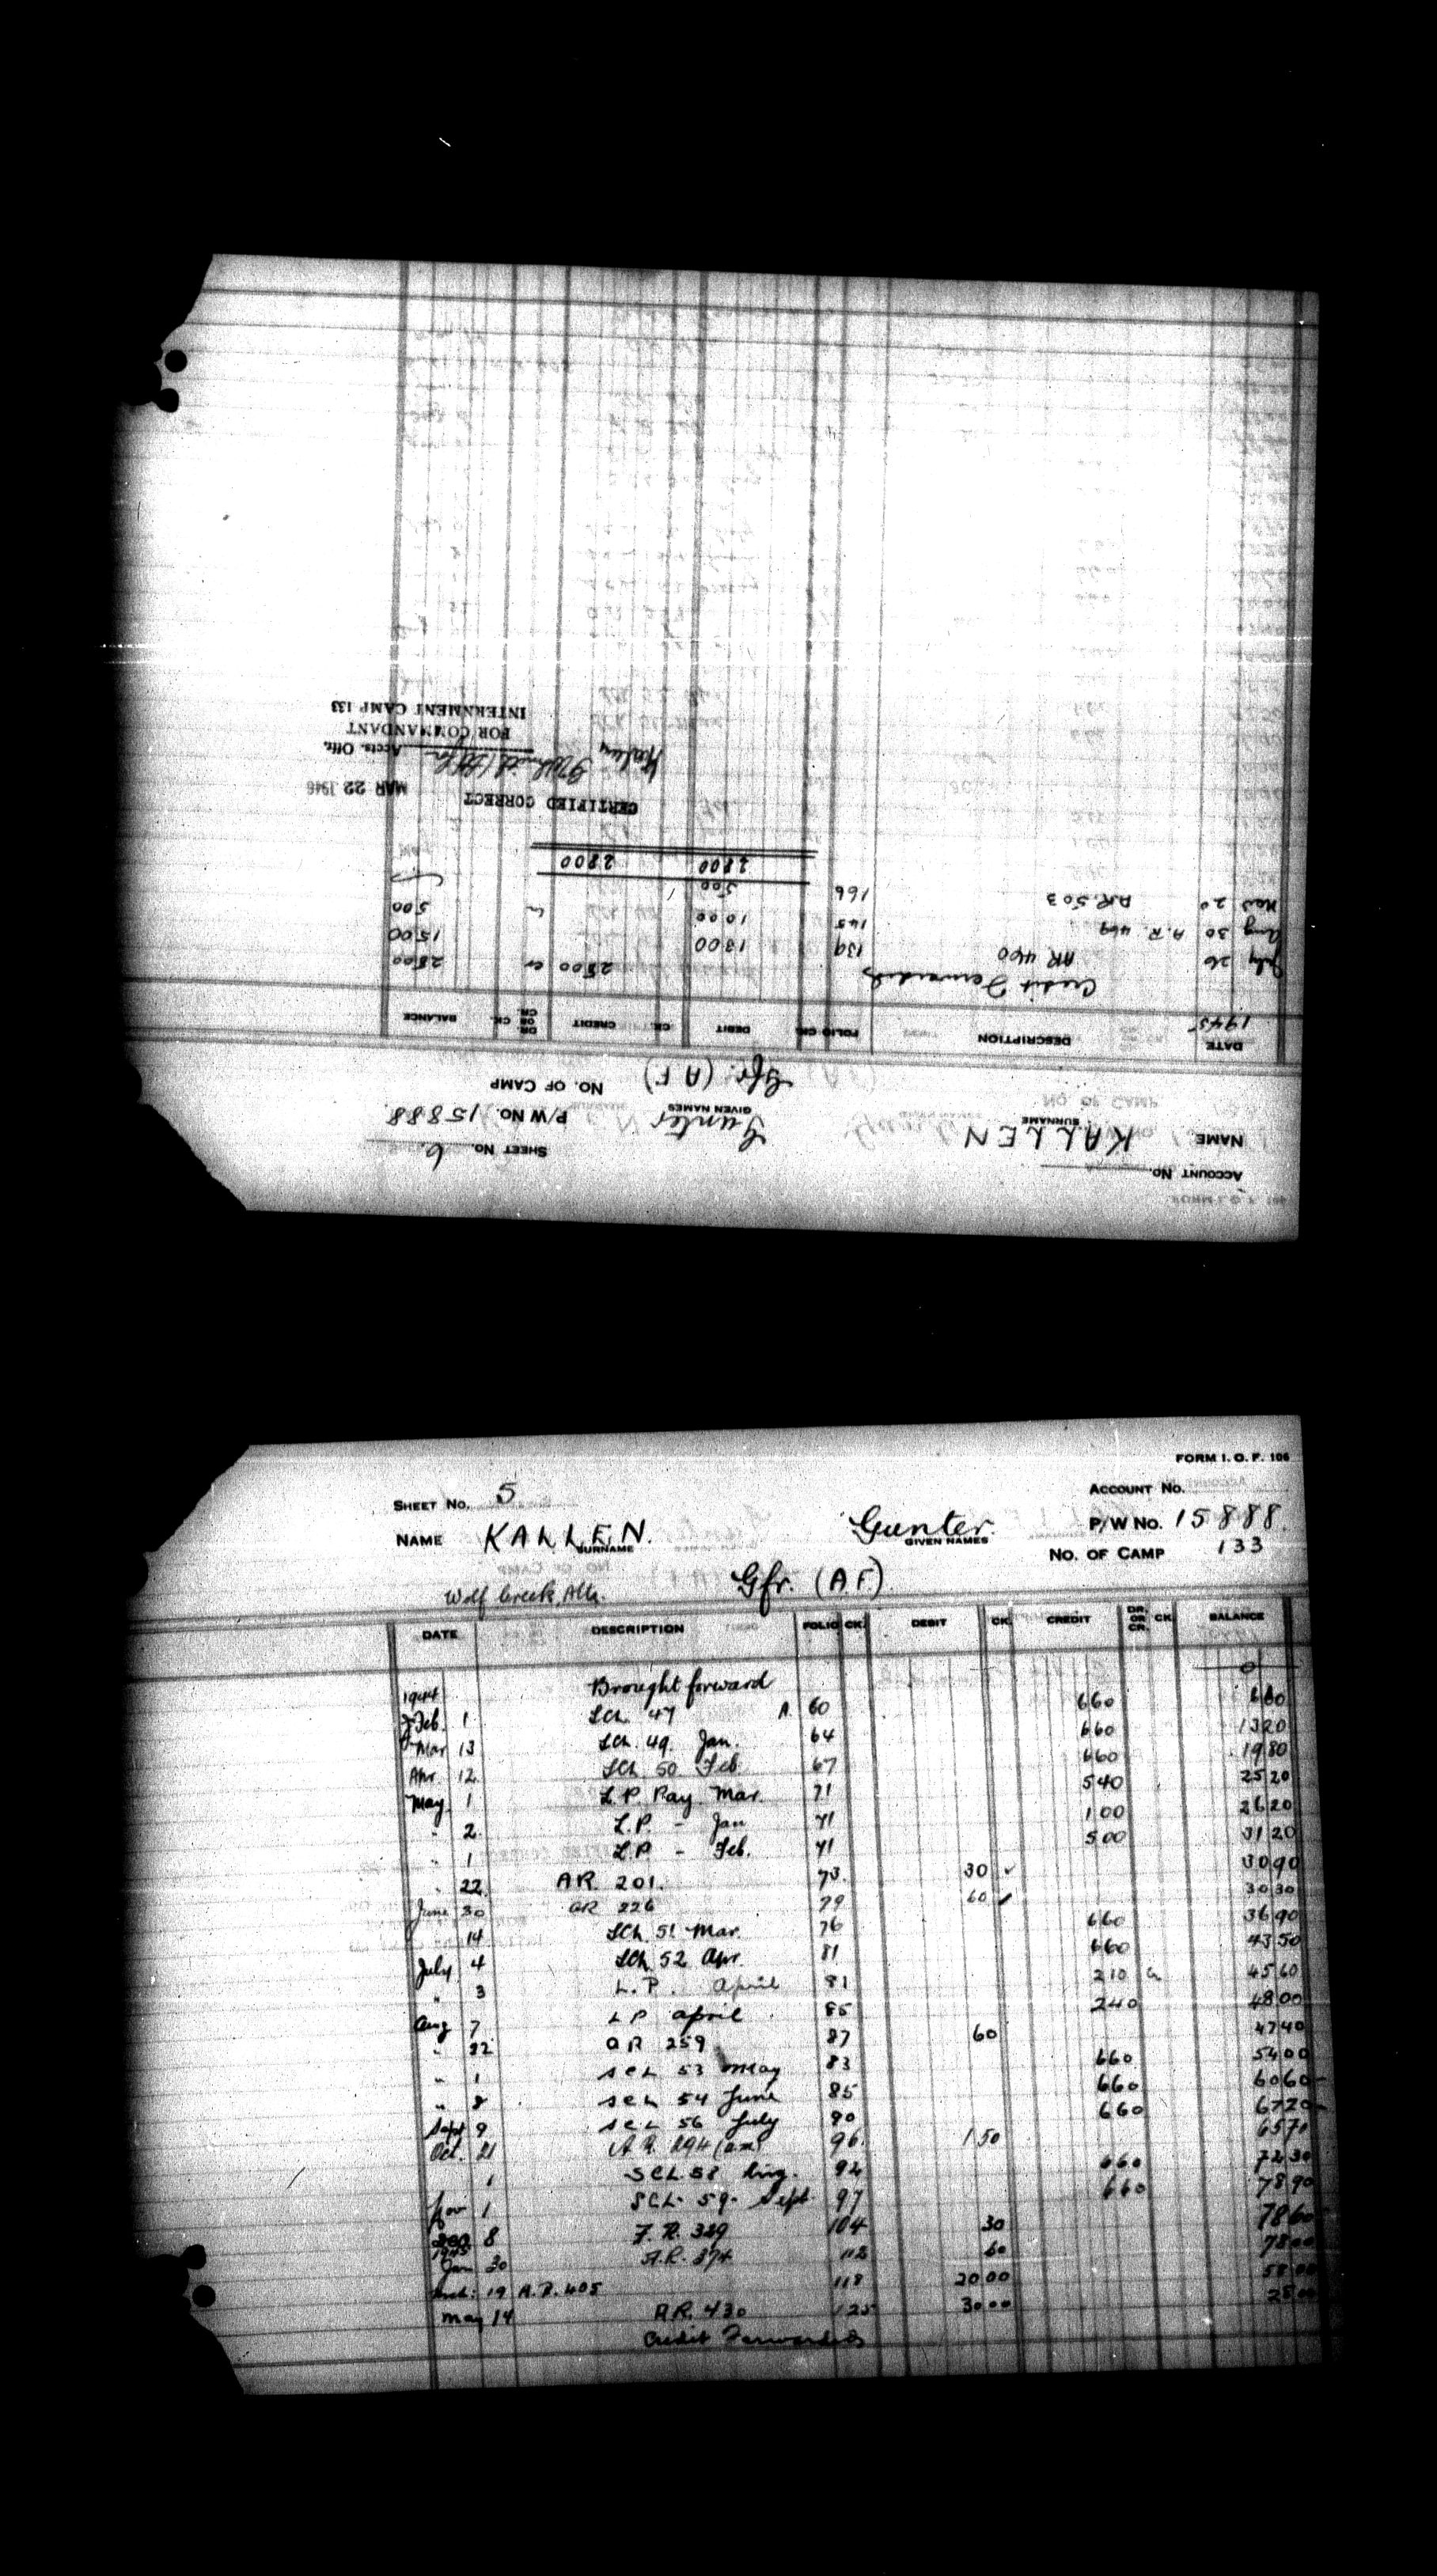 ACCOUNT No.
SHEET No. 6
NAME KALLEN Gunter P/W No. 15888
SURNAME GIVEN NAMES
Gfr. (A F) NO. OF CAMP
DATE DESCRIPTION FOLIO CK. DEBIT CK. CREDIT DR. OR CR. CK. BALANCE
1945
Credit Forwarded 2800 cr 2800
July 26 AR 440 139 1300 1500
Aug 30 A.R. 469 145 1000 500
Nov 20 A.R. 503 166 500
2800 2800
CERTIFIED CORRECT
MAR 22 1946
Accts. Offr.
FOR COMMANDANT
INTERNMENT CAMP 133
FORM I. O. F. 106
SHEET No. 5 ACCOUNT No.
NAME KALLEN. Gunter. P/W No. 15888
SURNAME GIVEN NAMES
NO. OF CAMP 133
Wolf Creek, Alta. Gfr. (A F)
DATE DESCRIPTION FOLIO CK. DEBIT CK. CREDIT DR. OR CR. CK. BALANCE
1944 Brought forward 0
Feb. 1 Sch. 47 A. 60 660 660
Mar 13 Sch. 49. Jan. 64 660 1320
Apr. 12 Sch 50 Feb. 67 660 1980
May 1 L.P. Pay Mar. 71 540 2520
" 2 L.P. - Jan 71 100 2620
" 1 L.P. - Feb. 71 500 3120
" 22. A.R. 201. 73. 30 ✓ 3090
June 30 AR 226 79 60 ✓ 3030
14 Sch. 51 Mar. 76 660 3690
July 4 Sch 52 Apr. 81 660 4350
" 3 L.P. April 81 210 Cr 4560
Aug 7 L P April 85 240 4800
" 22 A R 259 87 60 4740
" 1 SCL 53 May 83 660 5400
" 8 SCL 54 June 85 660 6060
Sept 9 SCL 56 July 90 660 6720
Oct. 21 A.R. 294 96. 150 6570
1 SCL 58 Aug. 92 660 7230
Nov 1 SCL. 59. Sept. 97 660 7890
Dec 8 A.R. 329 104 30 7860
1945
Jan 30 A.R. 374 112 60 7800
Mch. 19 A.R. 405 118 2000 5800
May 14 A.R. 430 125 3000 2800
Credit Forwarded